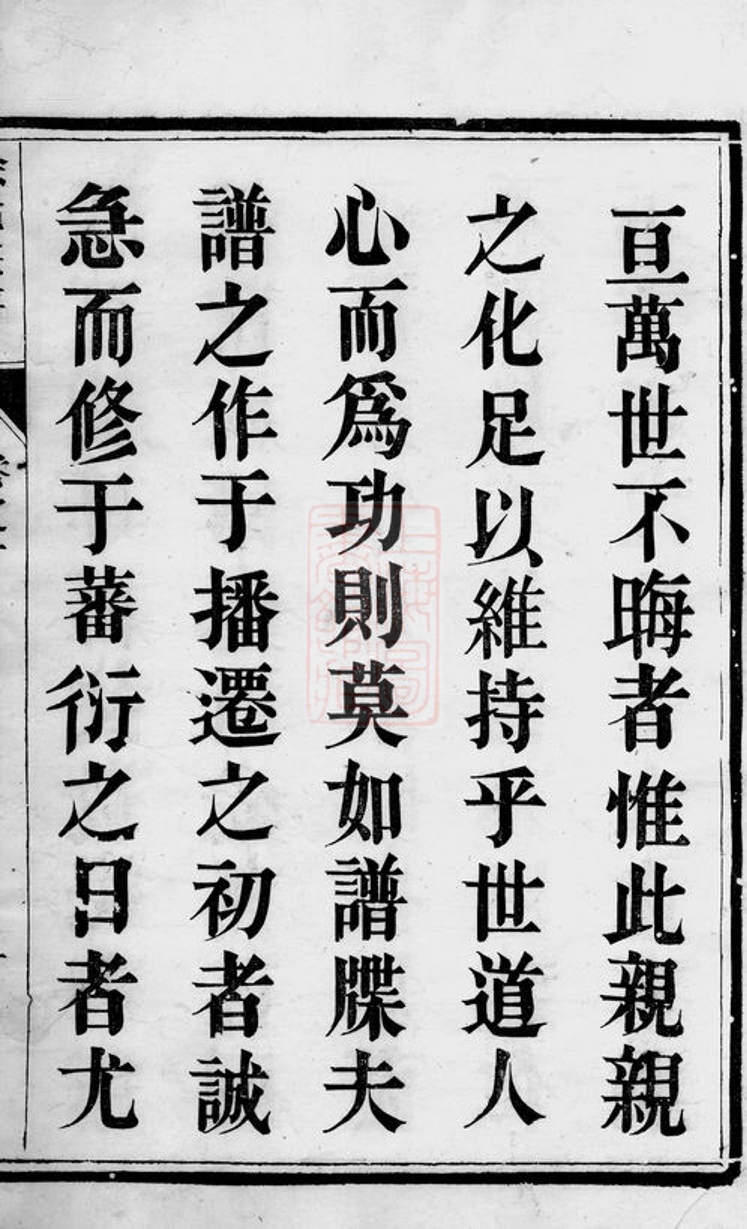 亘萬世不晦者惟此親親
之化足以維持乎世道人
心而爲功則莫如譜牒夫
譜之作于播遷之初者誠
急而修于蕃衍之日者尤